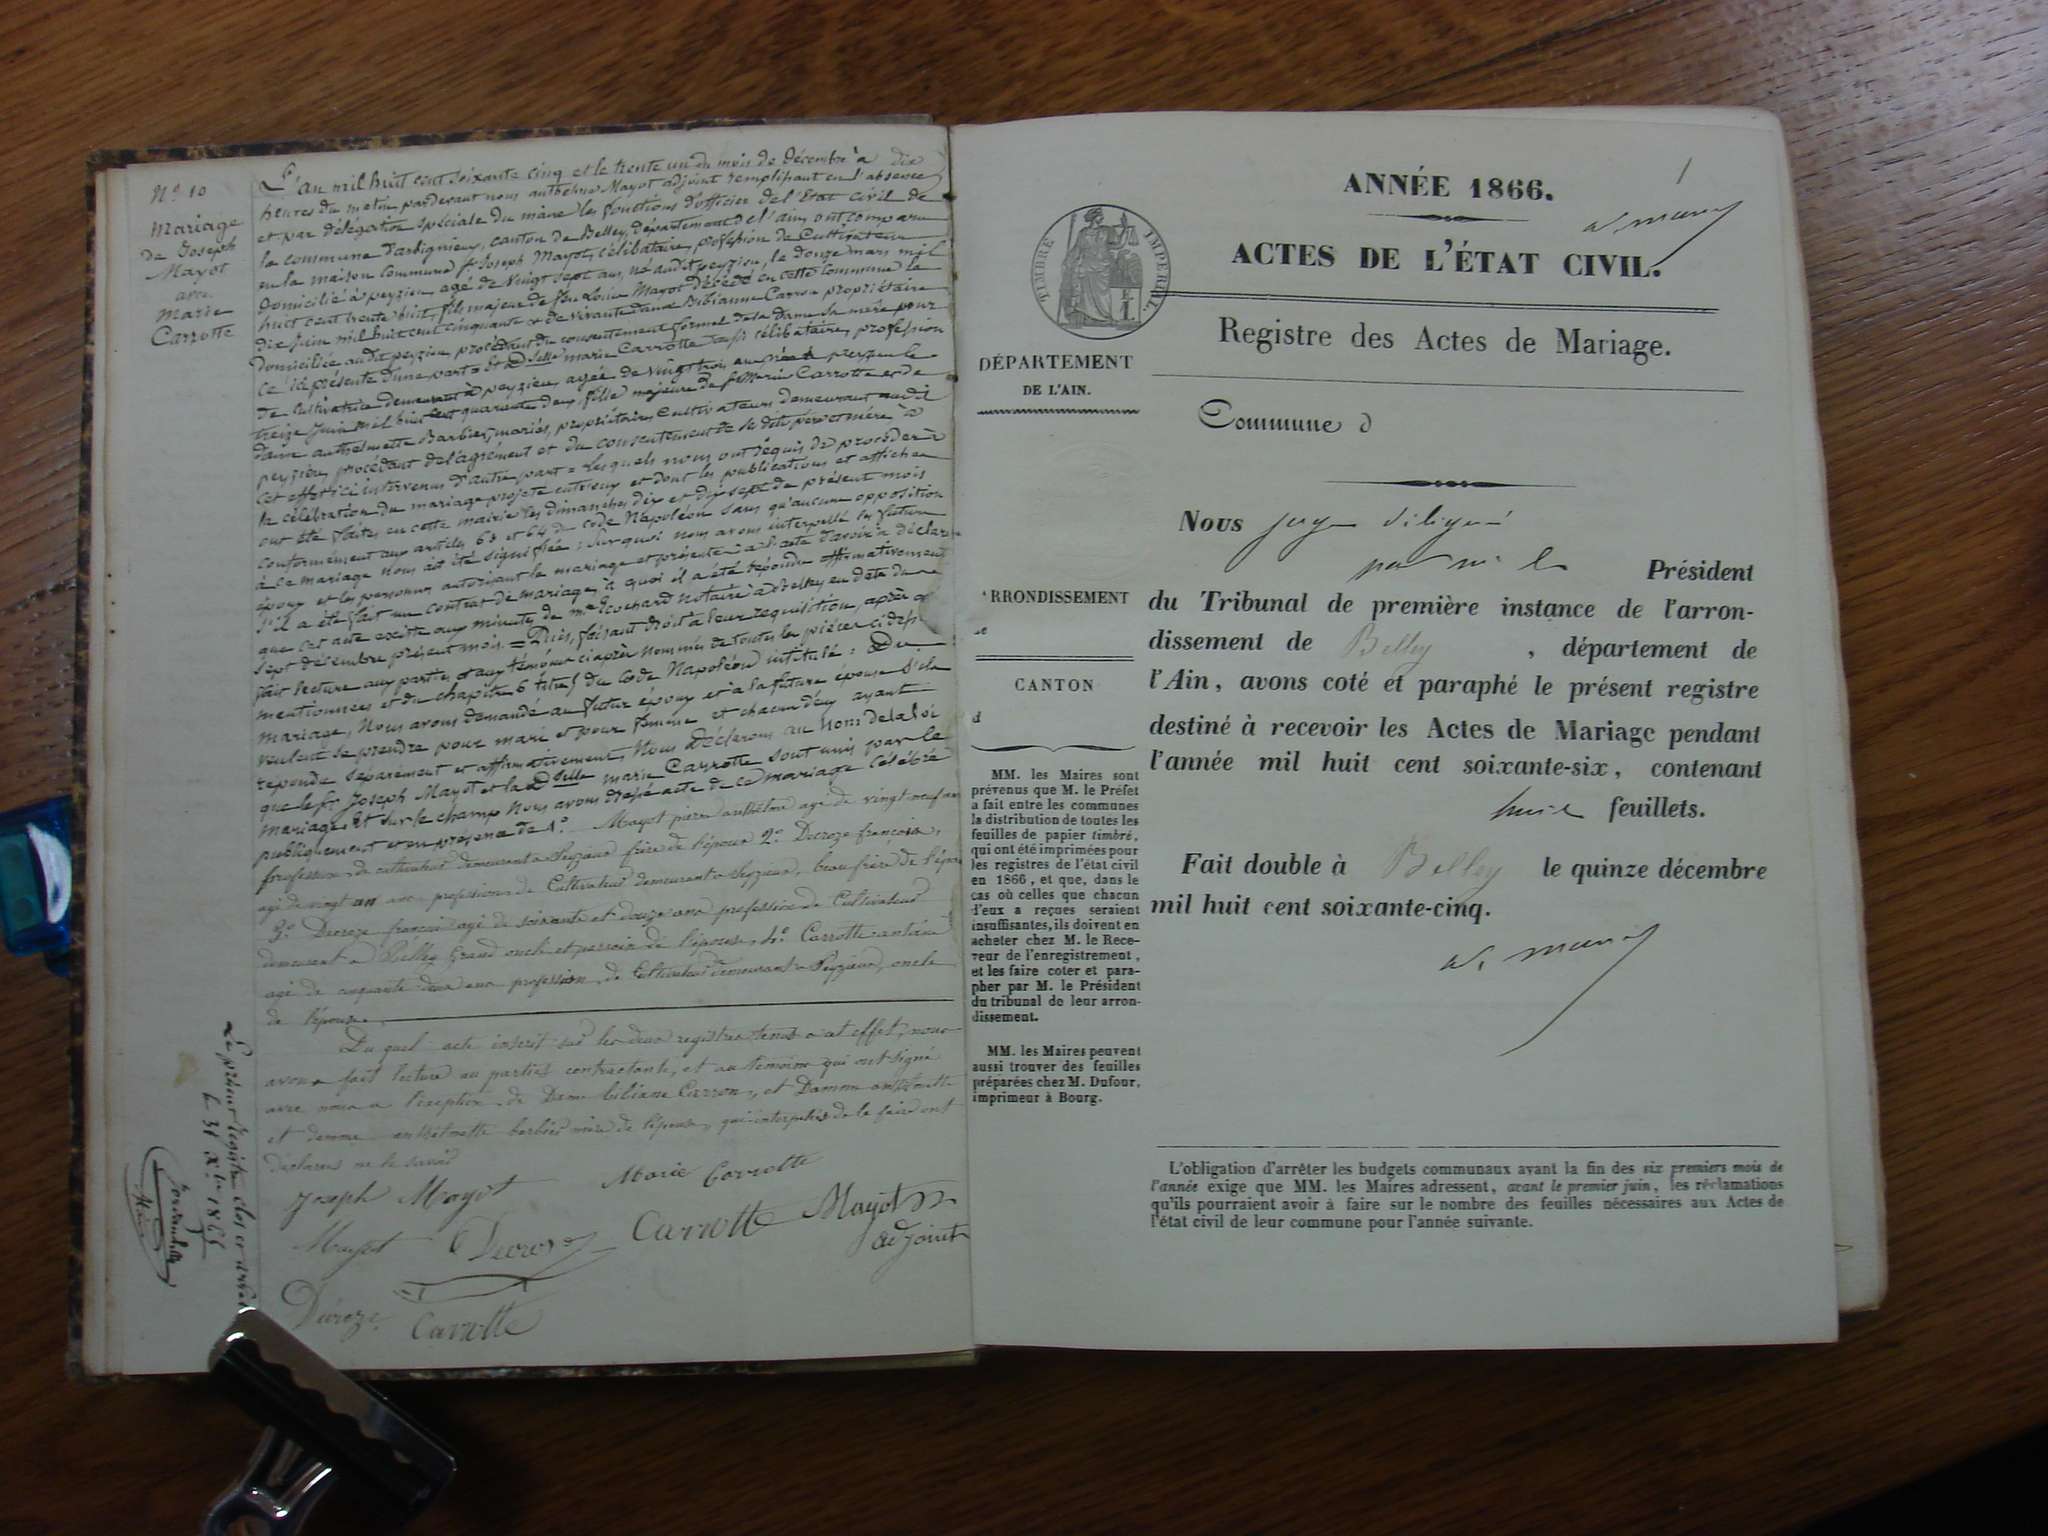 N.o 10
Mariage
de Joseph
Mayot
avec
Marie
Carrotte
L'an mil huit cent soixante cinq et le trente un du mois de décembre à dix
heures du matin pardevant nous anthelme Mayot adjoint remplissant en l'absence
et par délégation spéciale du maire les fonctions d'officier de l'Etat civil de
la commune d'arbignieu, canton de Belley, département de l'ain, ont comparu
en la maison commune Sr. Joseph Mayot, célibataire, profession de Cultivateur
Domicilié à peyzieu, agé de vingt sept ans, né audit peyzieu, le douze mars mil
huit cent trente huit, fils majeur de feu Louis Mayot décédé en cette commune le
dix juin mil huit cent cinquante & de vivante dame Bibianne Carron propriétaire
Domiciliée audit peyzieu, procédant du consentement formel de la Dame sa mère pour
ce ici présente d'une part = et Delle marie Carrotte aussi célibataire, profession
de cultivatrice demeurant à peyzieu, agée de vingt trois ans née à peyzieu le
treize juin mil huit cent quarante deux, fille majeure de Sr. Marin Carrotte et de
dame anthelmette Barbier, mariés, propriétaires Cultivateurs demeurant audit
peyzieu, procédant de l'agrément et du consentement de se dits père et mère à
cet effet ici intervenus d'autre part = Lesquels nous ont requis de procéder à
la célébration du mariage projeté entr'eux et dont les publications et affiches
ont été faites en cette mairie les dimanches dix et dix sept de présent mois
conformément aux articles 63 et 64 du code Napoléon sans qu'aucune opposition
à ce mariage nous ait été signifiée ; Sur quoi nous avons interpellé les futurs
époux et les personnes autorisant le mariage et présente à l'acte d'avoir à déclarer
s'il a été fait un contrat de mariage, à quoi il a été répondu affirmativement
que cet acte existe aux minutes de me Cochard notaire à Belley en date du
sept décembre présent mois. = Puis, faisant droit à leur requisition, après avoir
fait lecture aux parties et aux témoins ci après nommés de toutes les pièces ci dess
mentionnées et du chapitre 6 titre 5 du Code Napoléon intitulé : Du
mariage, Nous avons demandé au futur époux et à la future épouse s'ils
veulent se prendre pour mari et pour femme et chacun d'eux ayant
repondu séparément et affirmativement, Nous Déclarons au nom de la loi
que le Sr. Joseph Mayot et la Delle marie Carrotte sont unis par le
mariage. Et sur le champ Nous avons dressé acte de ce mariage célébré
publiquement et en présence de 1.o Mayot pierre anthelme age de vingt neuf ans
profession de cultivateur demeurant a Peyzieux frère de l'époux 2.o Decroze françois,
agé de vingt un ans profession de Cultivateur demeurant a Peyzieux, beau frère de l'époux
3.o Decroze françois agé de soixante et douze ans profession de Cultivateur
demeurant a Belley Grand oncle et parrain de l'épouse, 4.o Carrotte antoine
agé de cinquante deux ans profession de Cultivateur demeurant a Peyzieux, oncle
de l'épouse.
Du quel acte inscrit sur les deux registres tenus a cet effet, nous
avons fait lecture au parties contractante, et au témoins qui ont signé
avec nous a l'exception de Dame bibiane Carron, et Damme anthelmette
et damme anthelmette barbier mère de l'épouse, qui interpellés de le faire ont
déclarés ne le savoir
Joseph Mayot Marie Carrotte
Mayot Decroze Carrotte Mayot
adjoint
Decroze Carrotte
Le présent registre clos et arrêté
le 31 Xbre 1865
1
ANNÉE 1866.
ACTES DE L'ÉTAT CIVIL.
TIMBRE IMPERIAL.
Registre des Actes de Mariage.
DÉPARTEMENT
DE L'AIN.
Commune d
Nous juge délégué
par mr le Président
du Tribunal de première instance de l'arron-
dissement de Belley , département de
l'Ain, avons coté et paraphé le présent registre
destiné à recevoir les Actes de Mariage pendant
l'année mil huit cent soixante-six, contenant
huit feuillets.
Fait double à Belley le quinze décembre
mil huit cent soixante-cinq.
RRONDISSEMENT
de
CANTON
d
MM. les Maires sont
prévenus que M. le Préfet
a fait entre les communes
la distribution de toutes les
feuilles de papier timbré,
qui ont été imprimées pour
les registres de l'état civil
en 1866, et que, dans le
cas où celles que chacun
d'eux a reçues seraient
insuffisantes, ils doivent en
acheter chez M. le Rece-
veur de l'enregistrement,
et les faire coter et para-
pher par M. le Président
du tribunal de leur arron-
dissement.
MM. les Maires peuvent
aussi trouver des feuilles
préparées chez M. Dufour,
imprimeur à Bourg.
L'obligation d'arrêter les budgets communaux avant la fin des six premiers mois de
l'année exige que MM. les Maires adressent, avant le premier juin, les réclamations
qu'ils pourraient avoir à faire sur le nombre des feuilles nécessaires aux Actes de
l'état civil de leur commune pour l'année suivante.